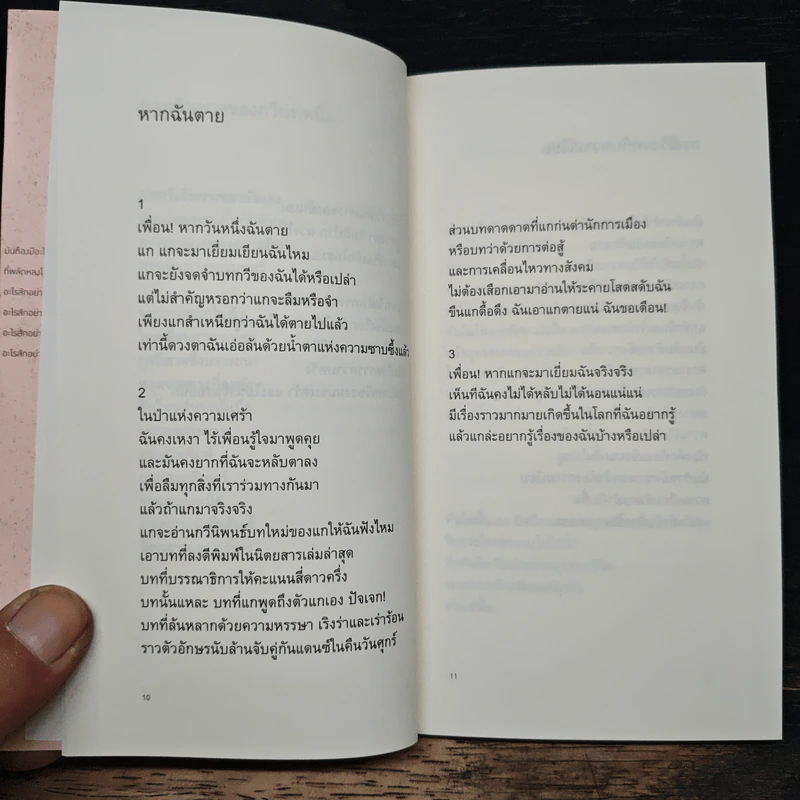 หากฉันตาย
1
เพื่อน! หากวันหนึ่งฉันตาย
แก แกจะมาเยี่ยมเยียนฉันไหม
แกจะยังจดจำบทกวีของฉันได้หรือเปล่า
แต่ไม่สำคัญหรอกว่าแกจะลืมหรือจำ
เพียงแกสำเหนียกว่าฉันได้ตายไปแล้ว
เท่านี้ดวงตาฉันเอ่อล้นด้วยน้ำตาแห่งความซาบซึ้งแล้ว
2
ในป่าแห่งความเศร้า
ฉันคงเหงา ไร้เพื่อนรู้ใจมาพูดคุย
และมันคงยากที่ฉันจะหลับตาลง
เพื่อลืมทุกสิ่งที่เราร่วมทางกันมา
แล้วถ้าแกมาจริงจริง
แกจะอ่านกวีนิพนธ์บทใหม่ของแกให้ฉันฟังไหม
เอาบทที่ลงตีพิมพ์ในนิตยสารเล่มล่าสุด
บทที่บรรณาธิการให้คะแนนสี่ดาวครึ่ง
บทนั้นแหละ บทที่แกพูดถึงตัวแกเอง ปัจเจก!
บทที่ล้นหลากด้วยความหรรษา เริงร่าและเร่าร้อน
ราวตัวอักษรนับล้านจับคู่กันแดนซ์ในคืนวันศุกร์
10
ส่วนบทดาดดาดที่แกก่นด่านักการเมือง
หรือบทว่าด้วยการต่อสู้
และการเคลื่อนไหวทางสังคม
ไม่ต้องเสือกเอามาอ่านให้ระคายโสตสดับฉัน
ขืนแกดื้อดึง ฉันเอาแกตายแน่ ฉันขอเตือน!
3
เพื่อน! หากแกจะมาเยี่ยมฉันจริงจริง
เห็นทีฉันคงไม่ได้หลับไม่ได้นอนแน่แน่
มีเรื่องราวมากมายเกิดขึ้นในโลกที่ฉันอยากรู้
แล้วแกล่ะอยากรู้เรื่องของฉันบ้างหรือเปล่า
11